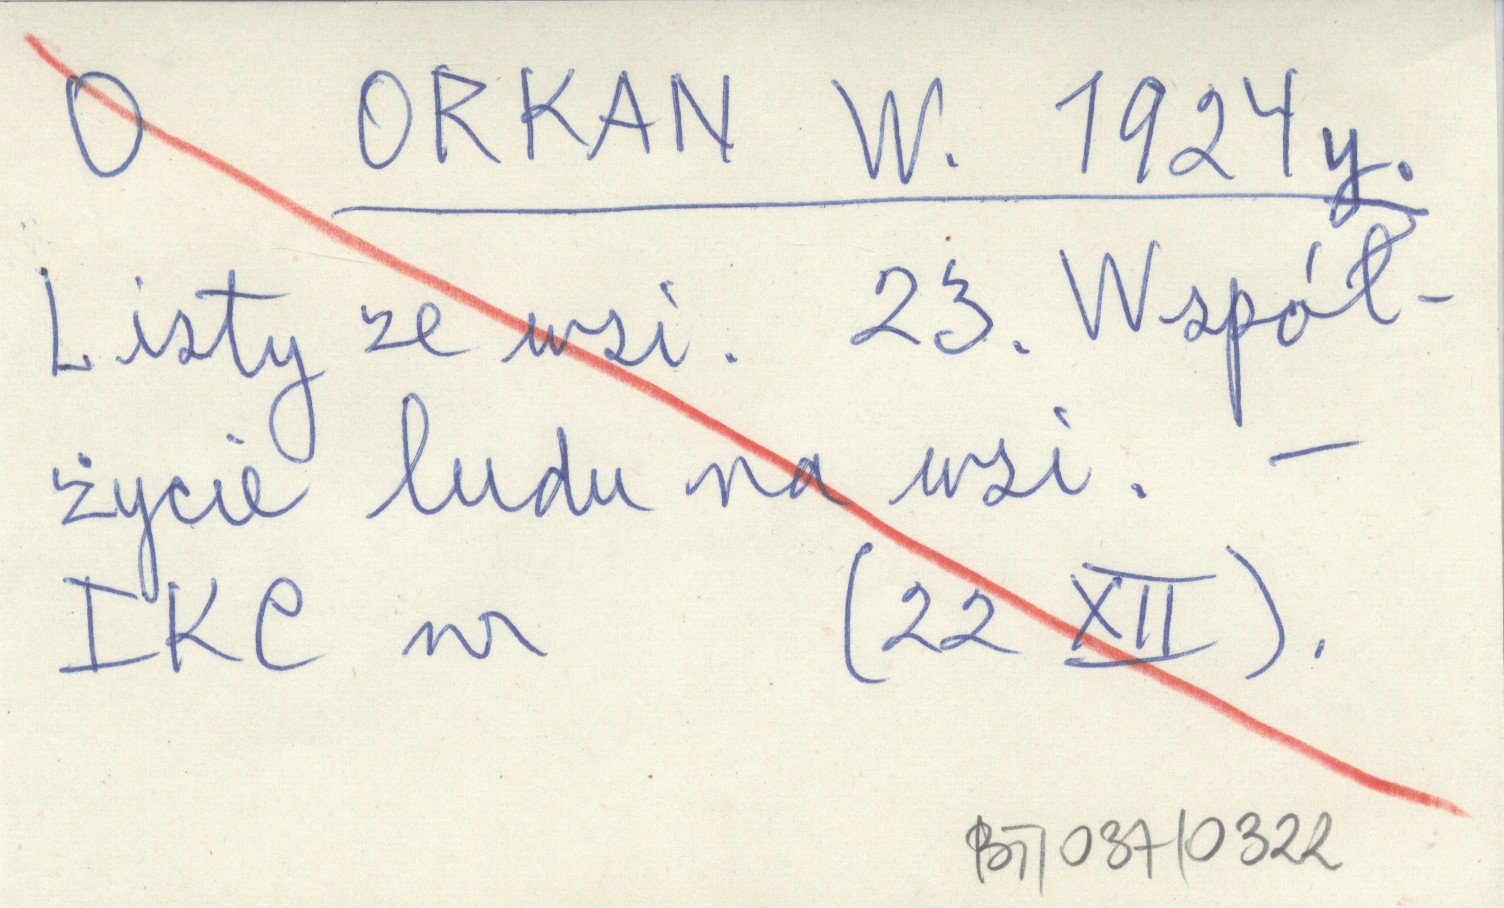 O ORKAN W. 1924y.
Listy ze wsi. 23. Współ-
życie ludu na wsi. —
IKC nr (22 XII).
BT/037/0322